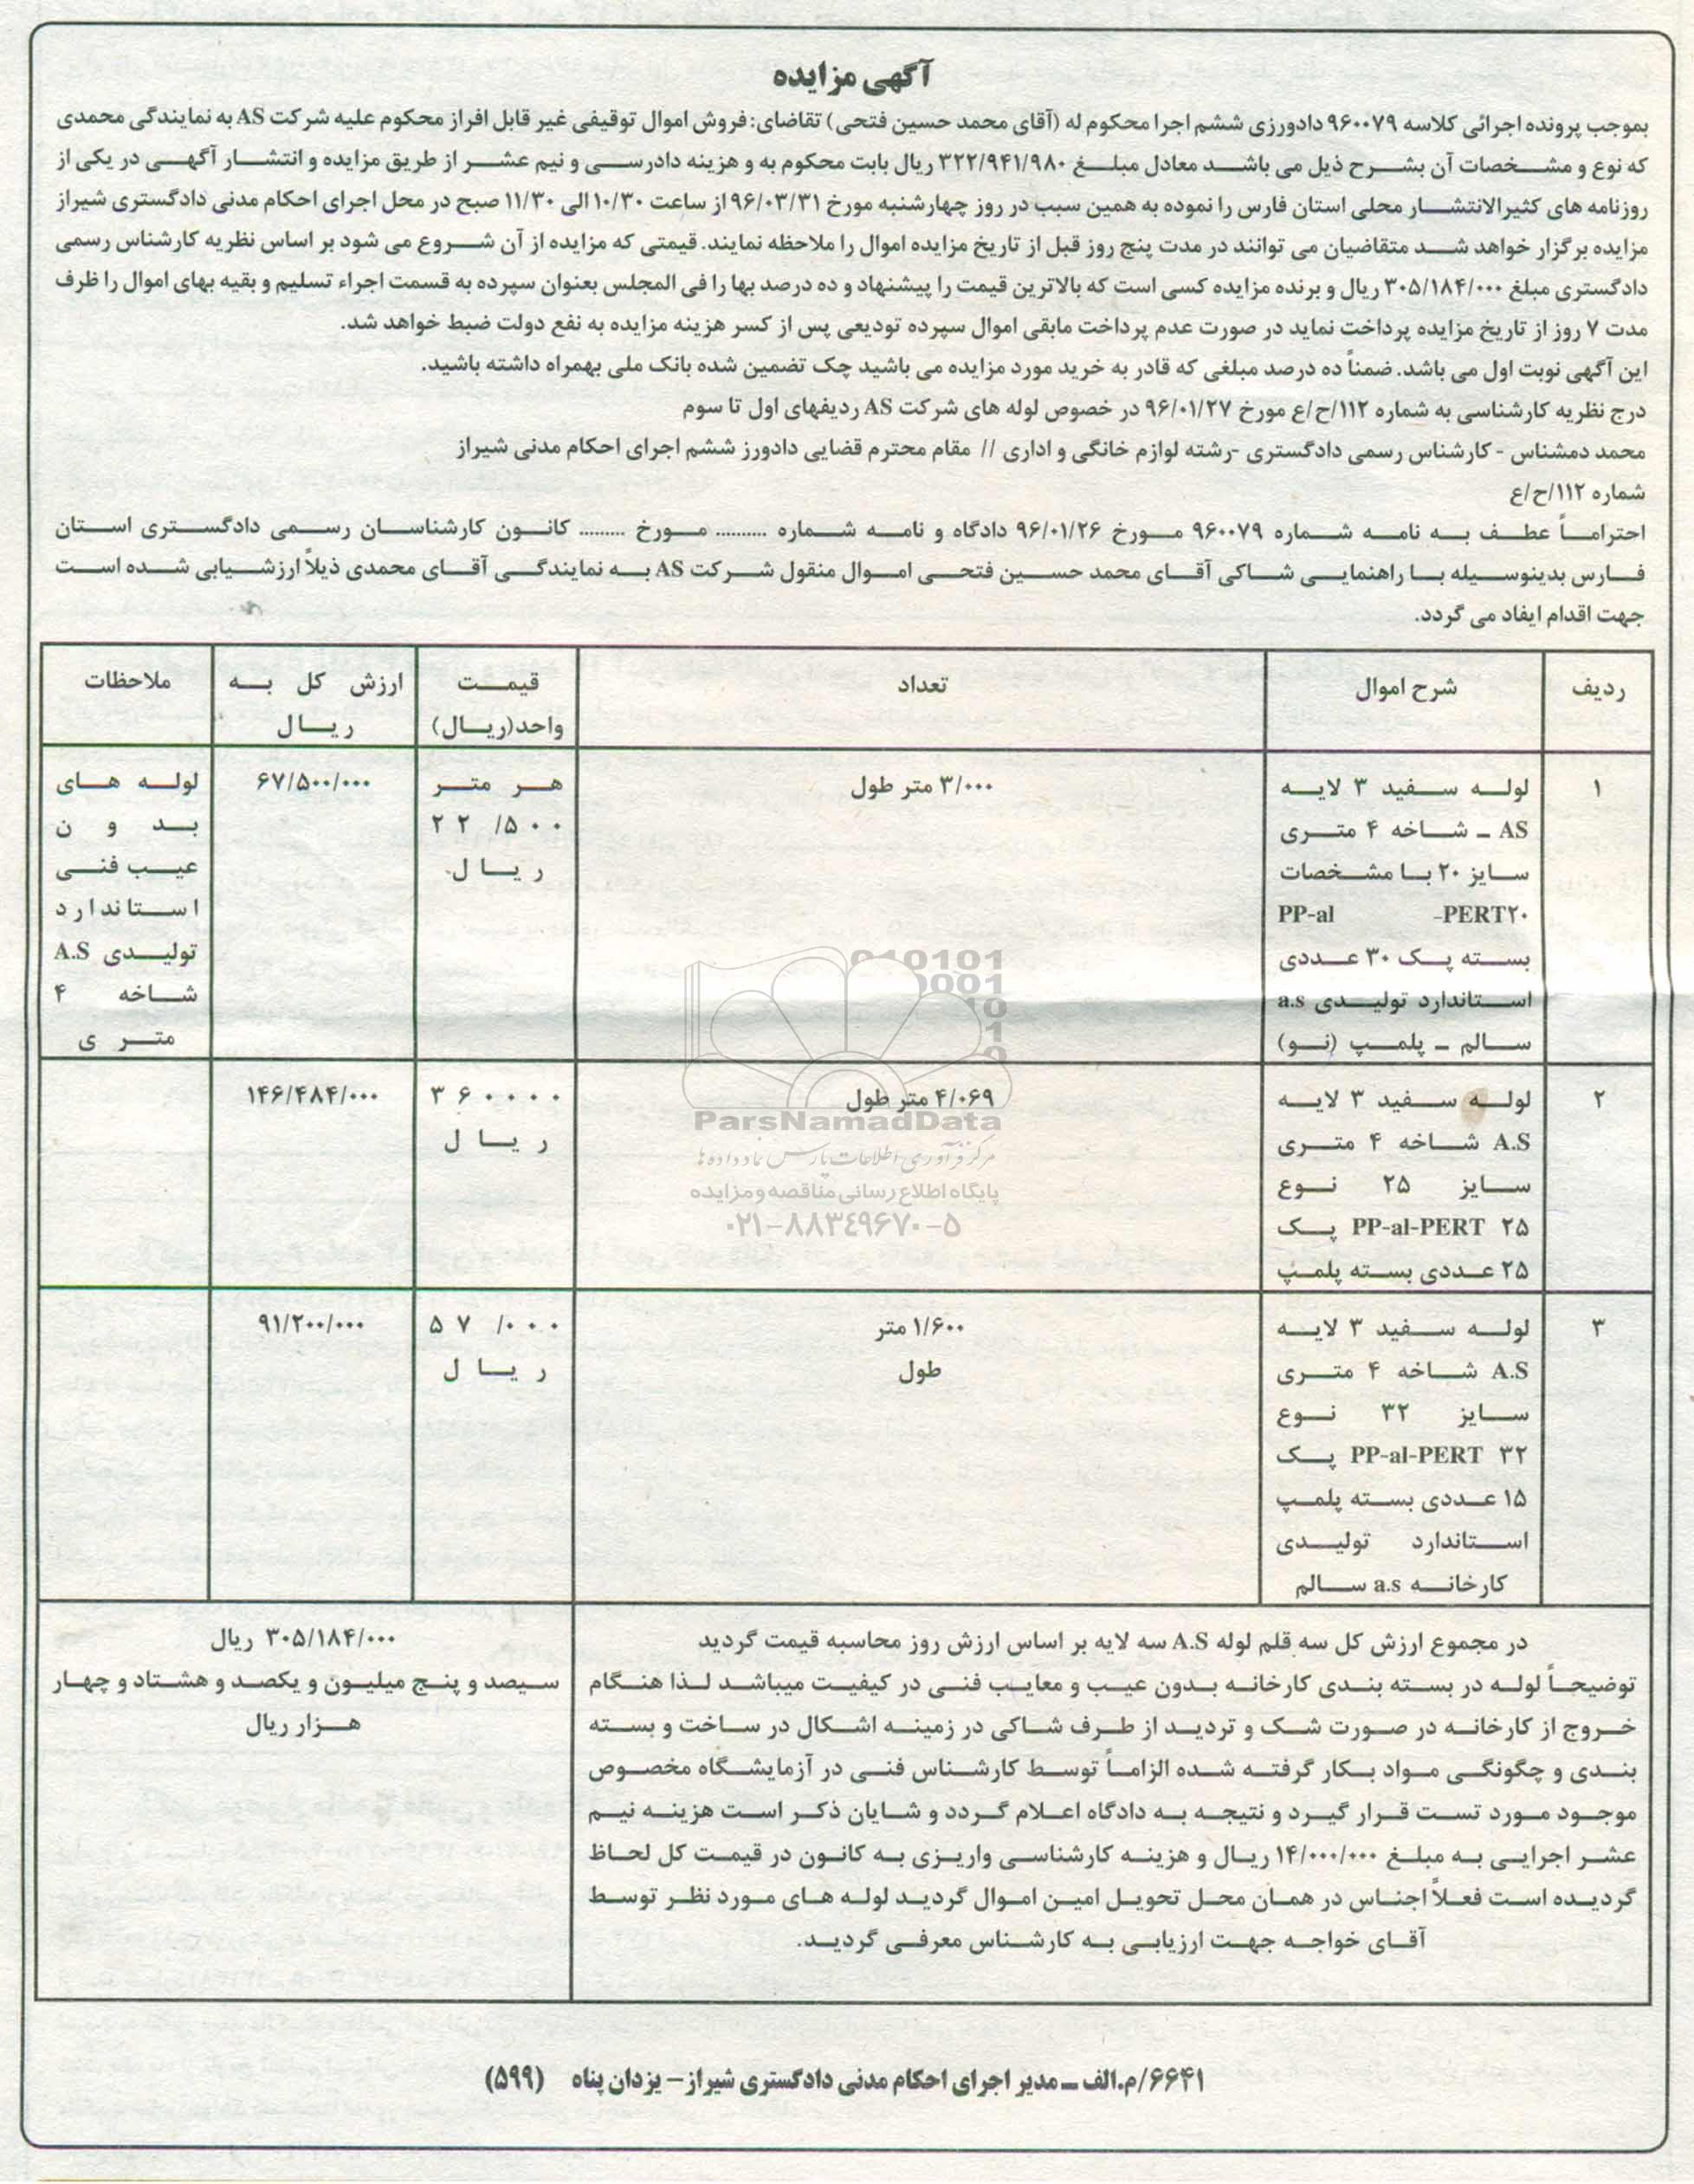 آگهی مزایده
بموجب پرونده اجرائی کلاسه ۹۶۰۰۷۹ دادورزی ششم اجرا محکوم له (آقای محمد حسین فتحی) تقاضای: فروش اموال توقیفی غیر قابل افراز محکوم علیه شرکت AS به نمایندگی محمدی
که نوع و مشخصات آن بشرح ذیل می باشد معادل مبلغ ۳۲۲/۹۴۱/۹۸۰ ریال بابت محکوم به و هزینه دادرسی و نیم عشر از طریق مزایده و انتشار آگهی در یکی از
روزنامه های کثیرالانتشار محلی استان فارس را نموده به همین سبب در روز چهارشنبه مورخ ۹۶/۰۳/۳۱ از ساعت ۱۰/۳۰ الی ۱۱/۳۰ صبح در محل اجرای احکام مدنی دادگستری شیراز
مزایده برگزار خواهد شد متقاضیان می توانند در مدت پنج روز قبل از تاریخ مزایده اموال را ملاحظه نمایند. قیمتی که مزایده از آن شروع می شود بر اساس نظریه کارشناس رسمی
دادگستری مبلغ ۳۰۵/۱۸۴/۰۰۰ ریال و برنده مزایده کسی است که بالاترین قیمت را پیشنهاد و ده درصد بها را فی المجلس بعنوان سپرده به قسمت اجراء تسلیم و بقیه بهای اموال را ظرف
مدت ۷ روز از تاریخ مزایده پرداخت نماید در صورت عدم پرداخت مابقی اموال سپرده تودیعی پس از کسر هزینه مزایده به نفع دولت ضبط خواهد شد.
این آگهی نوبت اول می باشد. ضمناً ده درصد مبلغی که قادر به خرید مورد مزایده می باشید چک تضمین شده بانک ملی بهمراه داشته باشید.
درج نظریه کارشناسی به شماره ۱۱۲/ح/ع مورخ ۹۶/۰۱/۲۷ در خصوص لوله های شرکت AS ردیفهای اول تا سوم
محمد دمشناس - کارشناس رسمی دادگستری -رشته لوازم خانگی و اداری // مقام محترم قضایی دادورز ششم اجرای احکام مدنی شیراز
شماره ۱۱۲/ح/ع
احتراماً عطف به نامه شماره ۹۶۰۰۷۹ مورخ ۹۶/۰۱/۲۶ دادگاه و نامه شماره .......... مورخ ......... کانون کارشناسان رسمی دادگستری استان
فارس بدینوسیله با راهنمایی شاکی آقای محمد حسین فتحی اموال منقول شرکت AS به نمایندگی آقای محمدی ذیلاً ارزشیابی شده است
جهت اقدام ایفاد می گردد.
ردیف
شرح اموال
تعداد
قیمت
واحد(ریال)
ارزش کل به
ریال
ملاحظات
۱
لوله سفید ۳ لایه
AS ـ شاخه ۴ متری
سایز ۲۰ با مشخصات
PP-al -PERT۲۰
بسته پک ۳۰ عددی
استاندارد تولیدی a.s
سالم ـ پلمپ (نو)
۳/۰۰۰ متر طول
هر متر
۲۲/۵۰۰
ریال
۶۷/۵۰۰/۰۰۰
لوله های
بدون
عیب فنی
استاندارد
تولیدی A.S
شاخه ۴
متری
۲
لوله سفید ۳ لایه
A.S شاخه ۴ متری
سایز ۲۵ نوع
PP-al-PERT ۲۵ پک
۲۵ عددی بسته پلمپ
۴/۰۶۹ متر طول
۳۶۰۰۰۰
ریال
۱۴۶/۴۸۴/۰۰۰
۳
لوله سفید ۳ لایه
A.S شاخه ۴ متری
سایز ۳۲ نوع
PP-al-PERT ۳۲ پک
۱۵ عددی بسته پلمپ
استاندارد تولیدی
کارخانه a.s سالم
۱/۶۰۰ متر
طول
۵۷/۰۰۰
ریال
۹۱/۲۰۰/۰۰۰
در مجموع ارزش کل سه قلم لوله A.S سه لایه بر اساس ارزش روز محاسبه قیمت گردید
توضیحاً لوله در بسته بندی کارخانه بدون عیب و معایب فنی در کیفیت میباشد لذا هنگام
خروج از کارخانه در صورت شک و تردید از طرف شاکی در زمینه اشکال در ساخت و بسته
بندی و چگونگی مواد بکار گرفته شده الزاماً توسط کارشناس فنی در آزمایشگاه مخصوص
موجود مورد تست قرار گیرد و نتیجه به دادگاه اعلام گردد و شایان ذکر است هزینه نیم
عشر اجرایی به مبلغ ۱۴/۰۰۰/۰۰۰ ریال و هزینه کارشناسی واریزی به کانون در قیمت کل لحاظ
گردیده است فعلاً اجناس در همان محل تحویل امین اموال گردید لوله های مورد نظر توسط
آقای خواجه جهت ارزیابی به کارشناس معرفی گردید.
۳۰۵/۱۸۴/۰۰۰ ریال
سیصد و پنج میلیون و یکصد و هشتاد و چهار
هزار ریال
۶۶۴۱/م.الف ـ مدیر اجرای احکام مدنی دادگستری شیراز – یزدان پناه (۵۹۹)
ParsNamadData
مرکز فرآوری اطلاعات پارس نماد داده ها
پایگاه اطلاع رسانی مناقصه و مزایده
۰۲۱-۸۸۳۴۹۶۷۰-۵